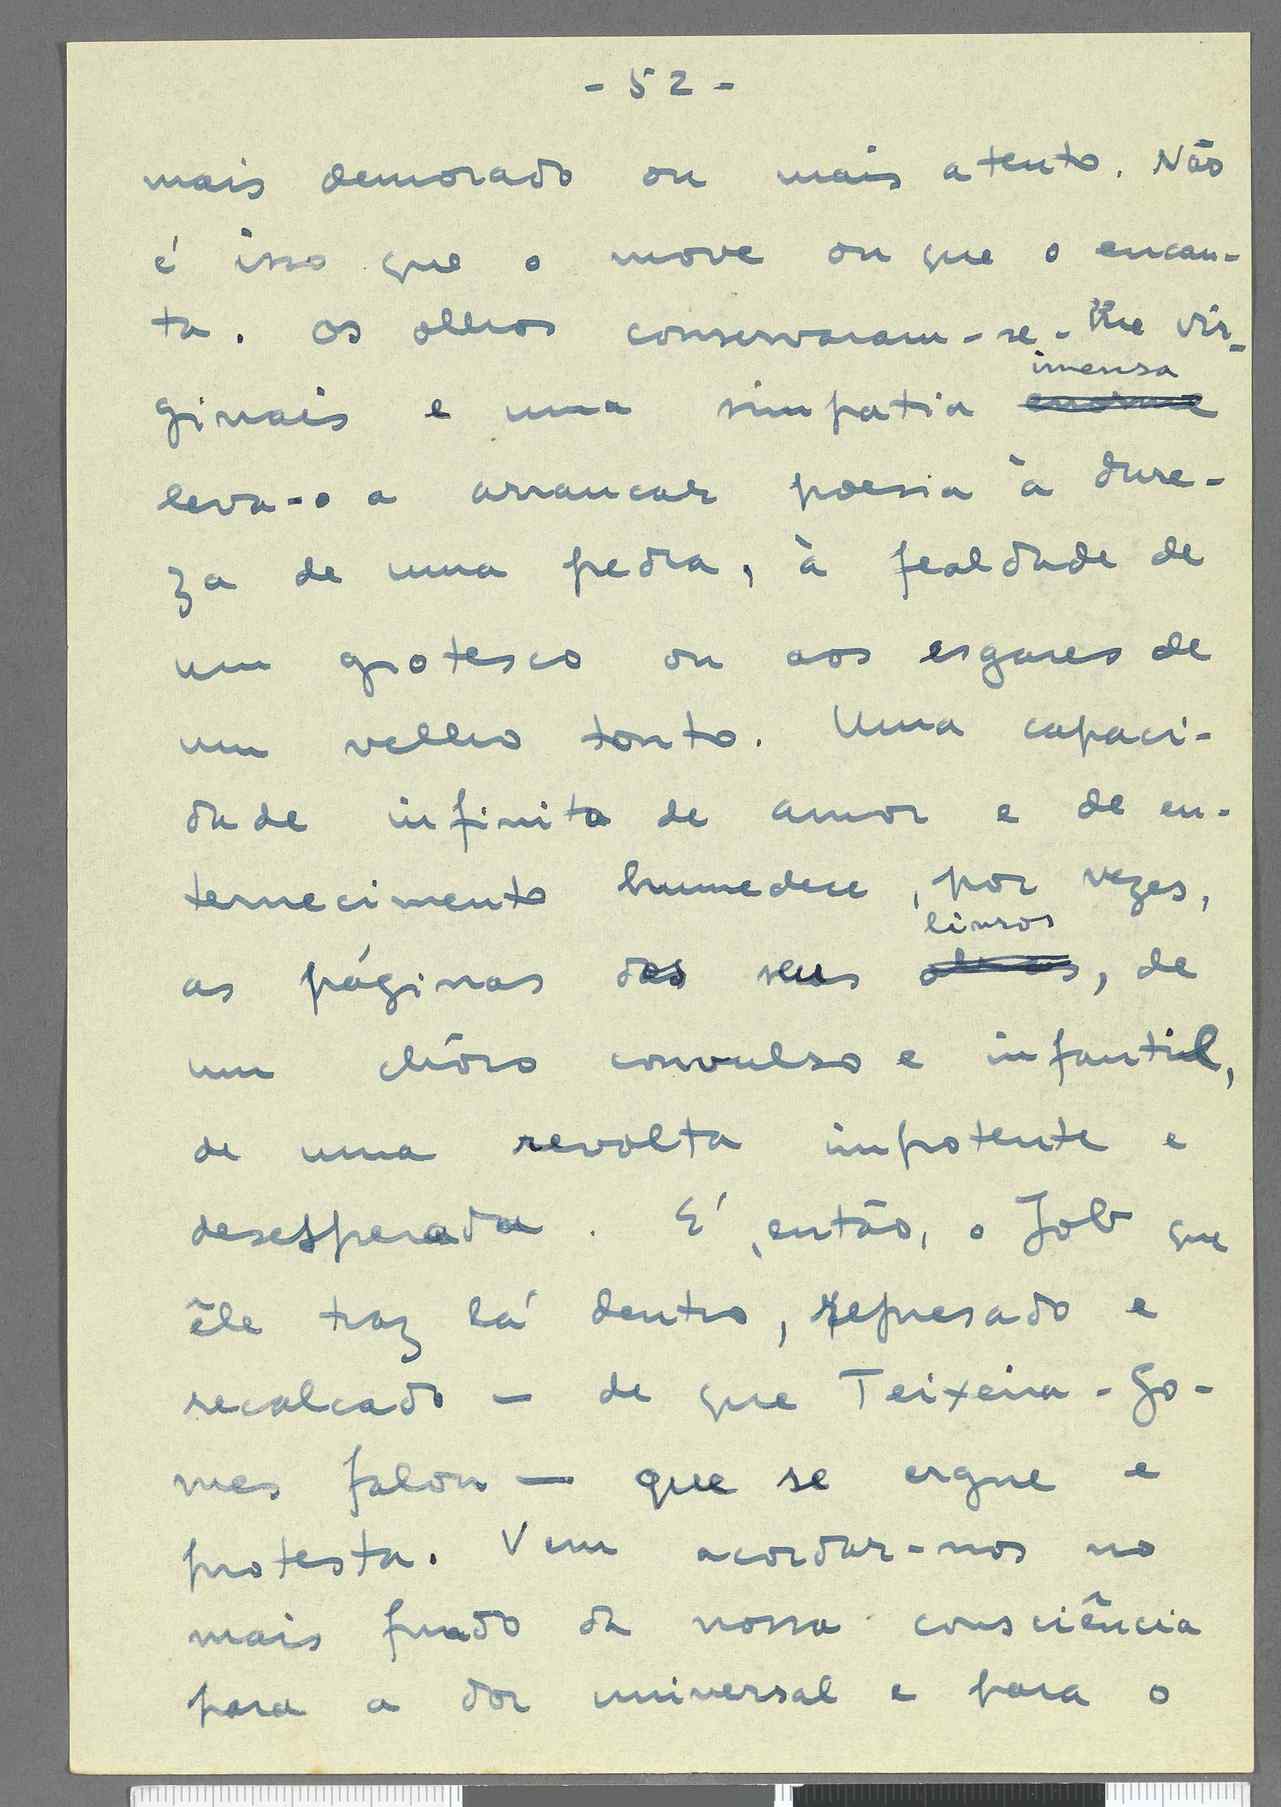 - 52 -
mais demorado ou mais atento. Não
é isso que o move ou que o encan-
ta. Os olhos conservaram-se-lhe vir-
imensa
ginais e uma simpatia enorme
leva-o a arrancar poesia à dure-
za de uma pedra, à fealdade de
um grotesco ou aos esgares de
um velho tonto. Uma capaci-
dade infinita de amor e de en-
ternecimento humedece, por vezes,
livros
as páginas dos seus obras, de
um chôro convulso e infantil,
de uma revolta impotente e
desesperada. E', então, o Job que
êle traz lá dentro, represado e
recalcado — de que Teixeira-Go-
mes falou — que se ergue e
protesta. Vem acordar-nos no
mais fundo da nossa consciência
para a dor universal e para o